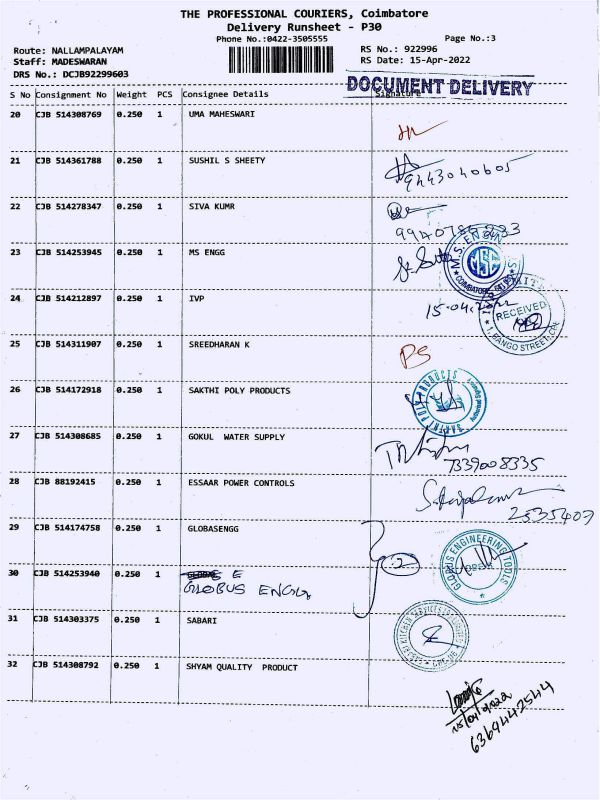 THE PROFESSIONAL COURIERS, Coimbatore
Delivery Runsheet - P30
Phone No.:0422-3505555
Page No.:3
Route: NALLAMPALAYAM
RS No.: 922996
Staff: MADESWARAN
RS Date: 15-Apr-2022
DRS No.: DCJB92299603
DOCUMENT DELIVERY
S No Consignment No Weight PCS Consignee Details Signature
20 CJB 514308769 0.250 1 UMA MAHESWARI
21 CJB 514361788 0.250 1 SUSHIL S SHEETY
9443040605
22 CJB 514278347 0.250 1 SIVA KUMR
23 CJB 514253945 0.250 1 MS ENGG
M.S. ENGIN
MSE
COIMBATORE
24 CJB 514212897 0.250 1 IVP
15-04-2022
RECEIVED
25 CJB 514311907 0.250 1 SREEDHARAN K
PS
26 CJB 514172918 0.250 1 SAKTHI POLY PRODUCTS
27 CJB 514308685 0.250 1 GOKUL WATER SUPPLY
7339008335
28 CJB 88192415 0.250 1 ESSAAR POWER CONTROLS
2535407
29 CJB 514174758 0.250 1 GLOBASENGG
GLOBUS ENGINEERING TOOLS
30 CJB 514253940 0.250 1 E
GLOBUS ENGG
2
31 CJB 514303375 0.250 1 SABARI
32 CJB 514308792 0.250 1 SHYAM QUALITY PRODUCT
15/04/2022
6369442544